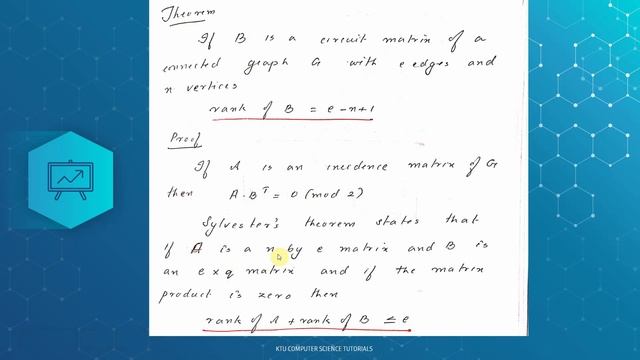 Theorem
If B is a circuit matrix of a
connected graph G with e edges and
n vertices
rank of B = e-n+1
Proof
If A is an incidence matrix of G
then A.Bᵀ = 0 (mod 2)
Sylvester's theorem states that
if A is a n by e matrix and B is
an e x q matrix and if the matrix
product is zero then
rank of A + rank of B ≤ e
KTU COMPUTER SCIENCE TUTORIALS